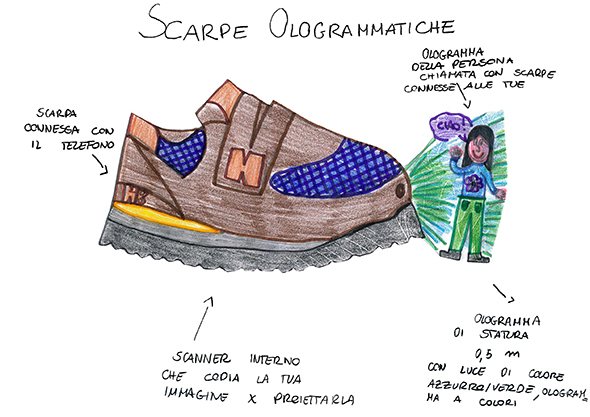 SCARPE OLOGRAMMATICHE
OLOGRAMMA
DELLA PERSONA
CHIAMATA CON SCARPE
CONNESSE ALLE TUE
SCARPA
CONNESSA CON
IL TELEFONO
CIAO!
H
HB
SCANNER INTERNO
CHE COPIA LA TUA
IMMAGINE X PROIETTARLA
OLOGRAMMA
DI STATURA
0,5 m
CON LUCE DI COLORE
AZZURRO/VERDE, OLOGRAM-
MA A COLORI